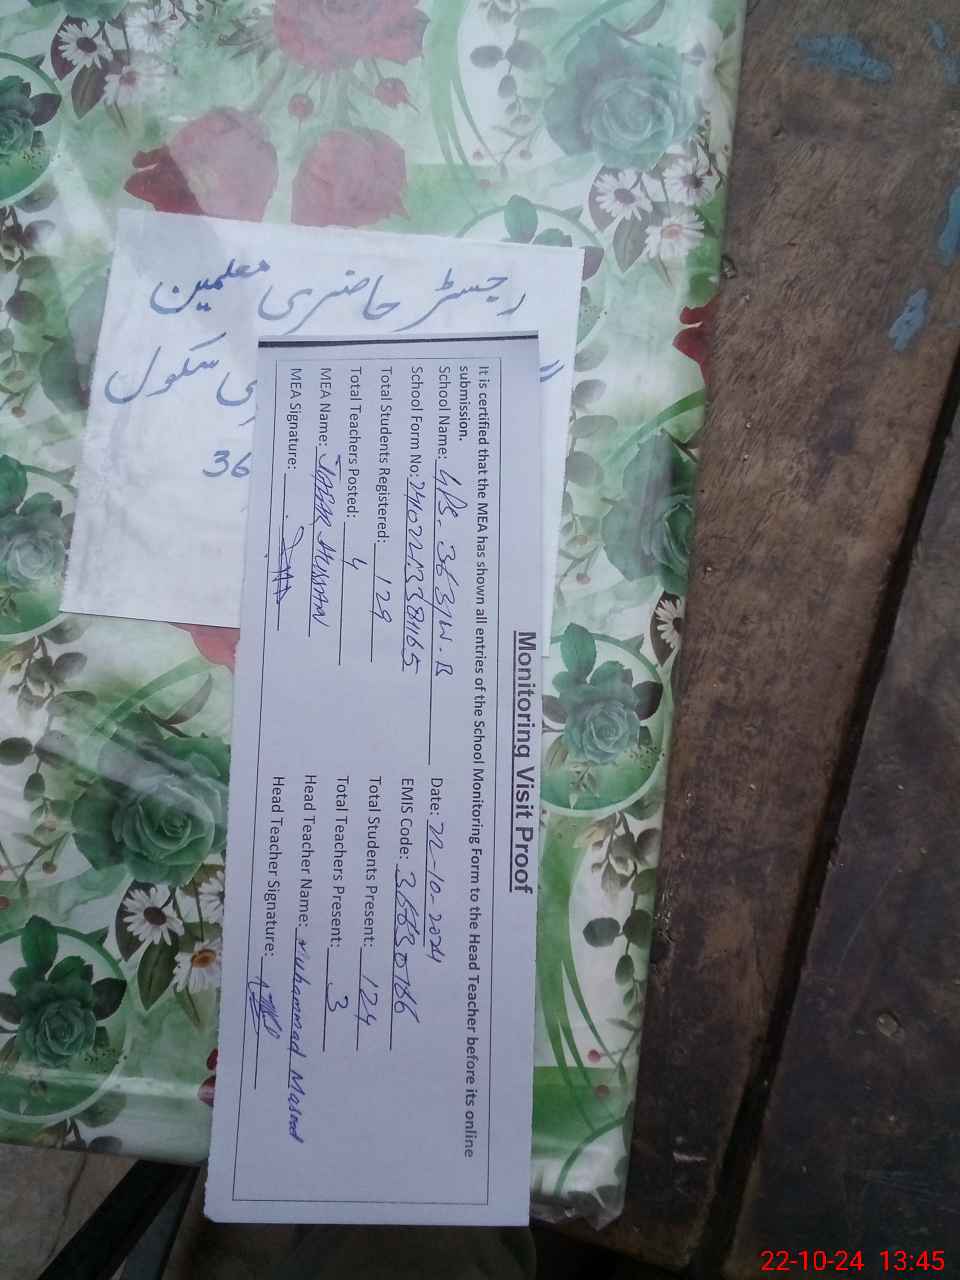 رجسٹر حاضری معلمین
سکول
36
Monitoring Visit Proof
It is certified that the MEA has shown all entries of the School Monitoring Form to the Head Teacher before its online
submission.
School Name: GPS. 363/W.B Date: 22-10-2024
School Form No: EMIS Code:
Total Students Registered: 129 Total Students Present: 124
Total Teachers Posted: 4 Total Teachers Present: 3
MEA Name: JAFAR HUSSAIN Head Teacher Name: Muhammad Masood
MEA Signature: Head Teacher Signature:
22-10-24 13:45